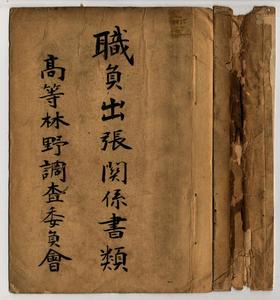 職員出張関係書類
高等林野調査委員會